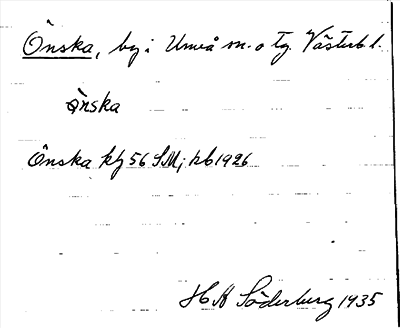 Önska, by i Umeå m. o tg. Västerb l.
önska
Önska kbj 56 SM; kb 1926
H A Söderberg 1935